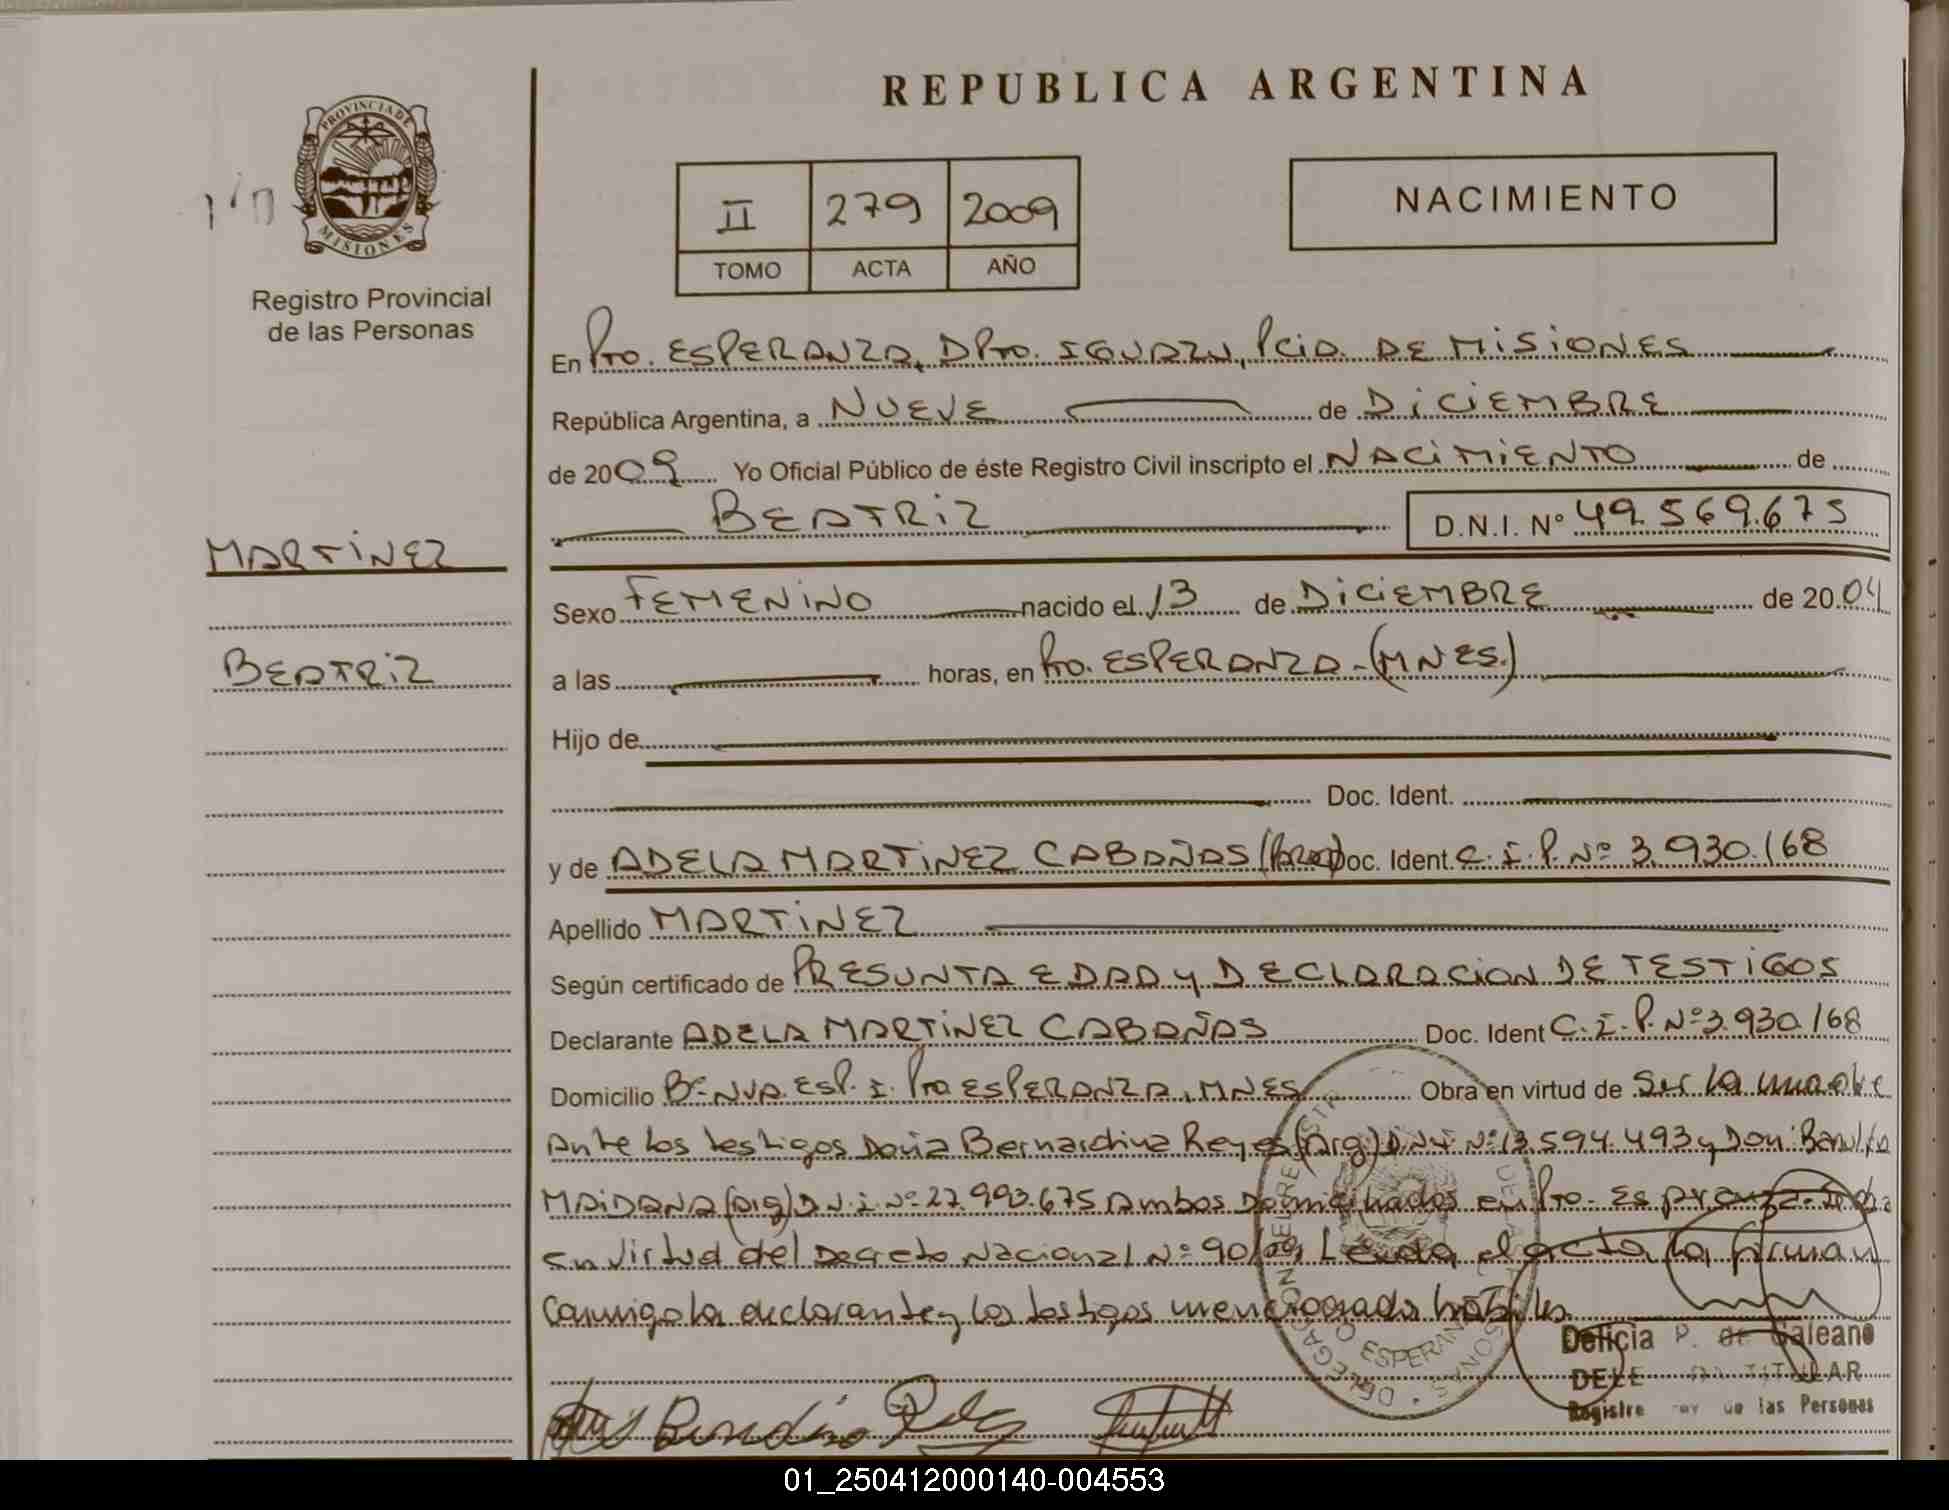 REPUBLICA ARGENTINA
PROVINCIA DE
MISIONES
Registro Provincial
de las Personas
II 279 2009
TOMO ACTA AÑO
NACIMIENTO
En Pto. ESPERANZA, DPto. IGUAZU, Pcia. DE MISIONES
República Argentina, a NUEVE de DICIEMBRE
de 2009 Yo Oficial Público de éste Registro Civil inscripto el NACIMIENTO de
BEATRIZ D.N.I. Nº 49.569.675
MARTINEZ
BEATRIZ
Sexo FEMENINO nacido el 13 de DICIEMBRE de 2004
a las horas, en Pto. ESPERANZA-(MNES.)
Hijo de
Doc. Ident.
y de ADELA MARTINEZ CABAÑAS Doc. Ident. C.I.P. Nº 3.930.168
Apellido MARTINEZ
Según certificado de PRESUNTA EDAD y DECLARACION DE TESTIGOS
Declarante ADELA MARTINEZ CABAÑAS Doc. Ident C.I.P. Nº 3.930.168
Domicilio Bº NVA. ESP. I. Pto ESPERANZA, MNES Obra en virtud de Ser la madre
Ante los testigos Doña Bernardina Reyes (Arg) D.N.I. Nº 13.594.493 y Don:
MAIDANA (Arg) D.N.I. Nº 27.993.675 Ambos Domiciliados en Pto. Esperanza
en virtud del Decreto Nacional Nº 90/09, Leida el acta la firman
Conmigo la declarante y los testigos mencionados hábiles
Delicia P. de Galeano
TITULAR
las Personas
01_250412000140-004553